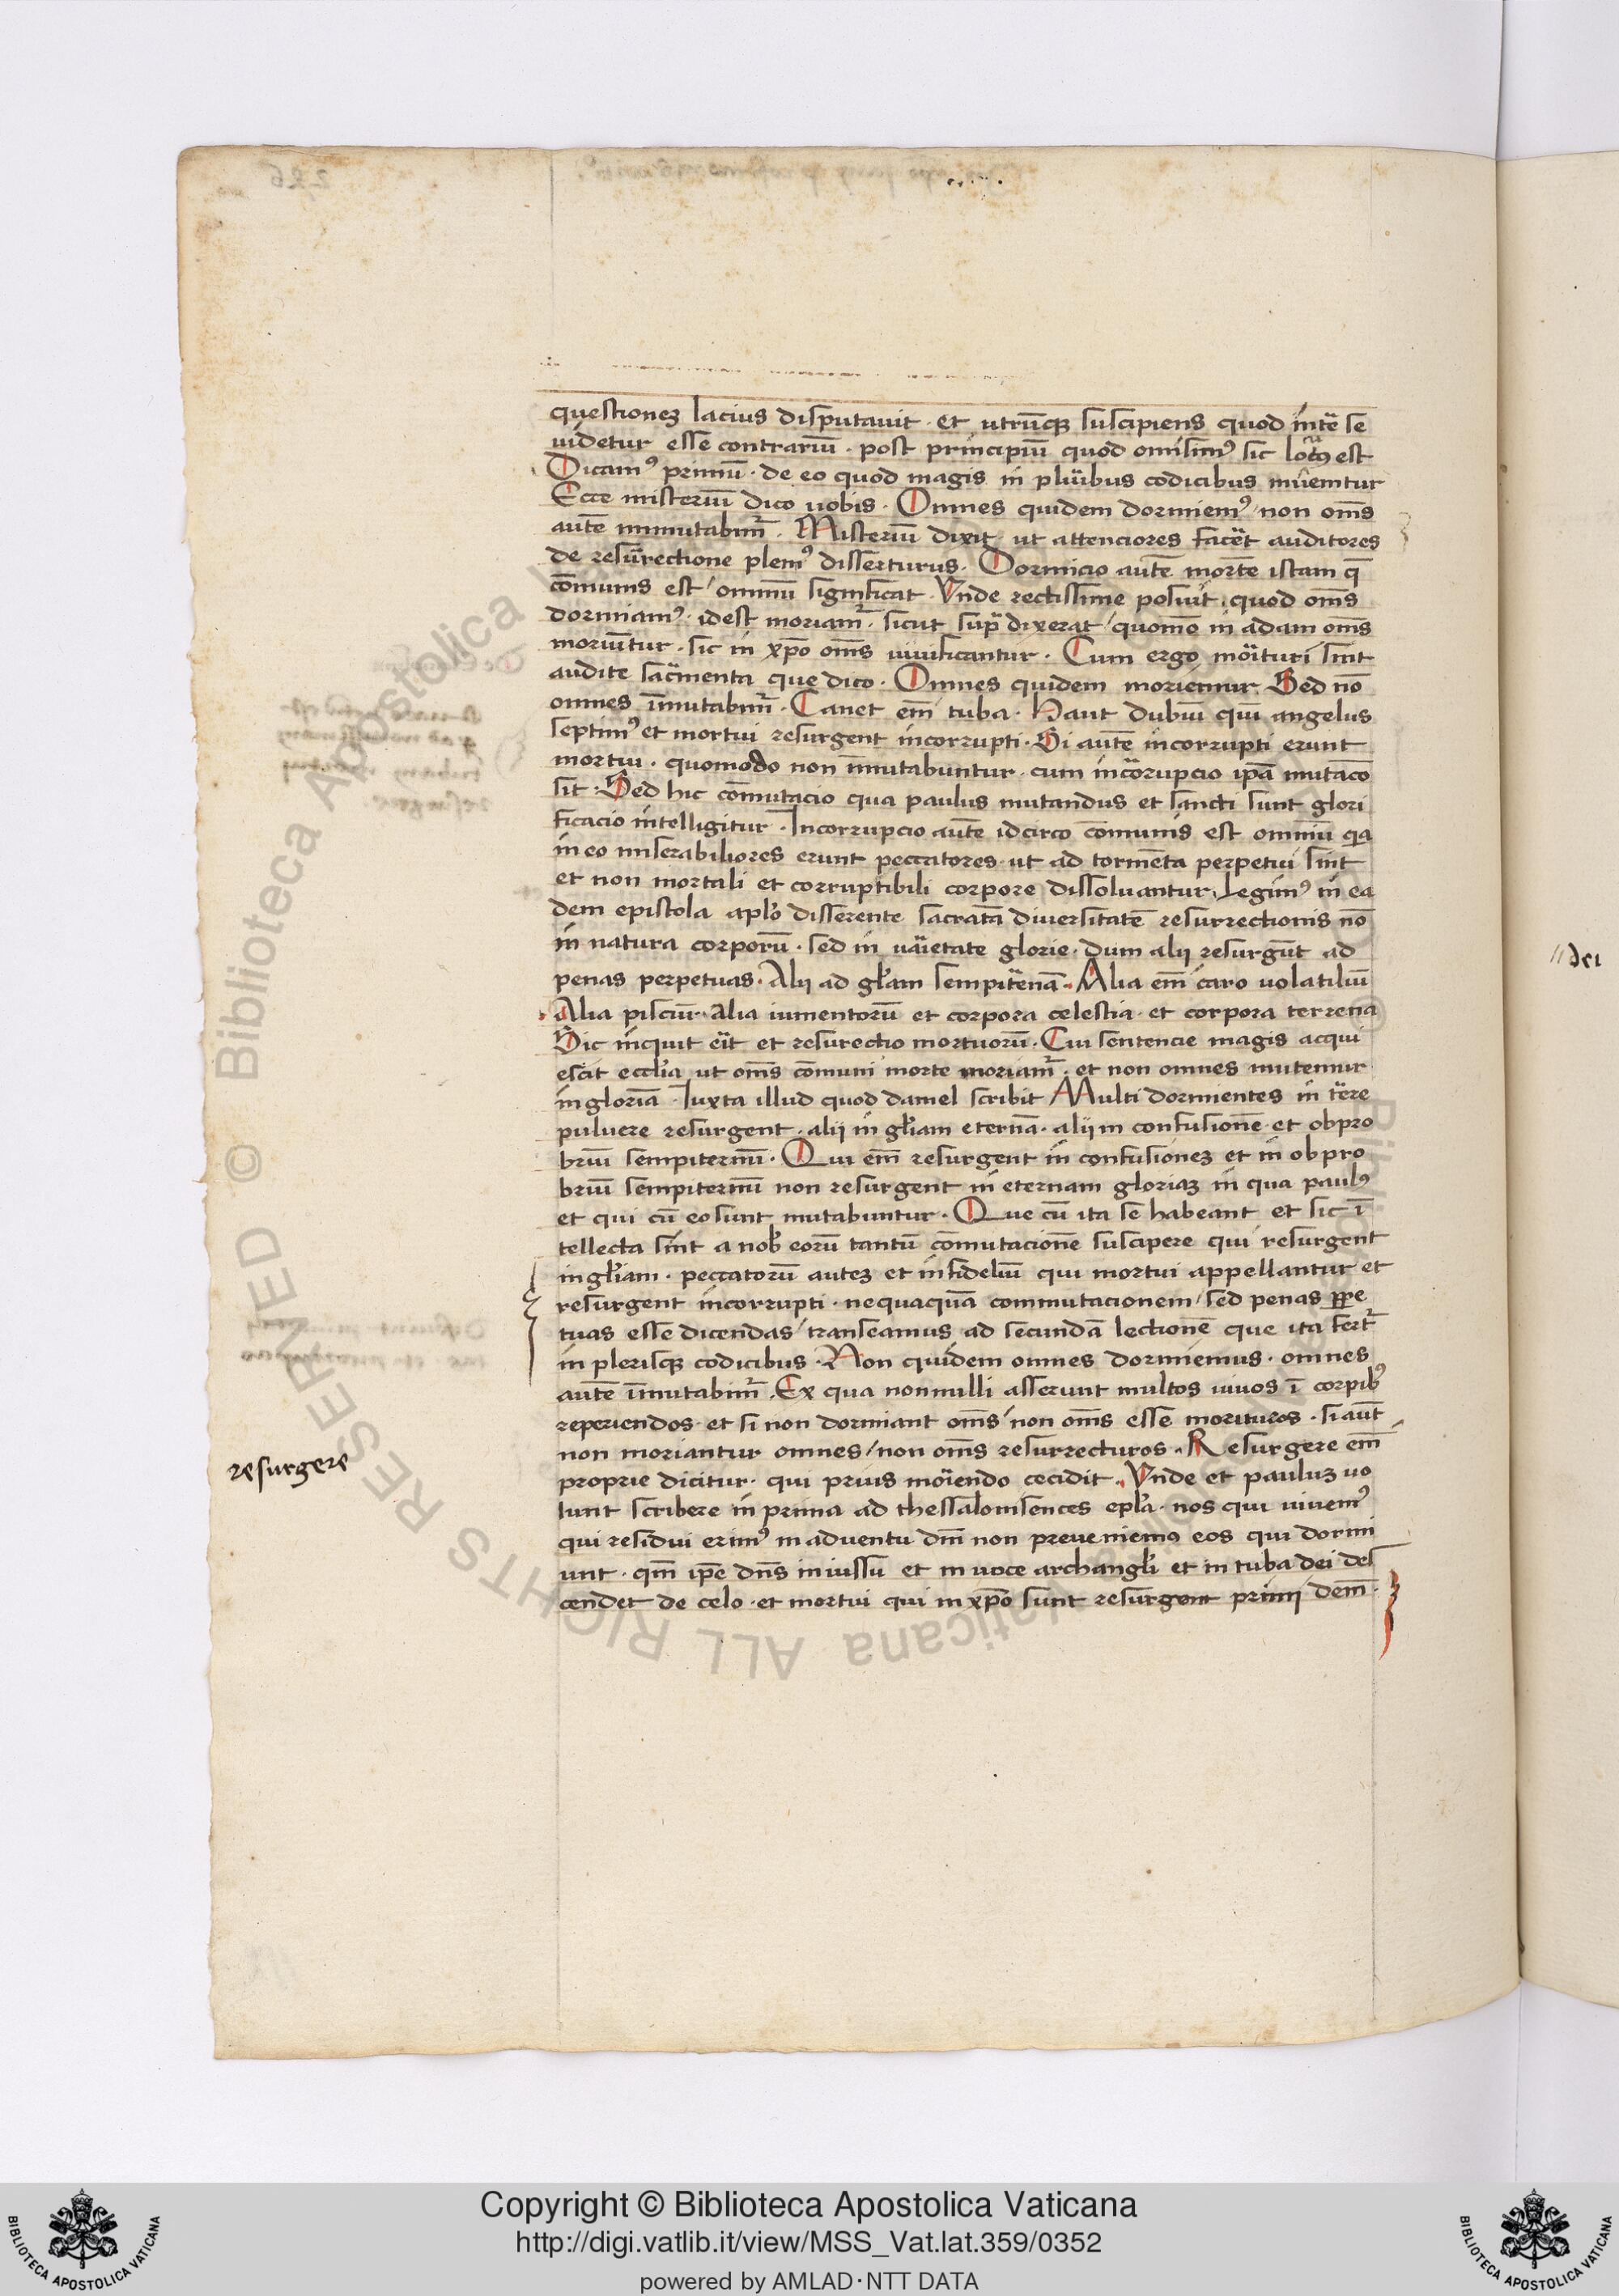 questionez lacius disputauit · et utrūq; suscipiens quod int̄ se
uidetur esse contrariū · post principiū quod omisim⁹ sic locut⁹ est
Dicam⁹ primū · de eo quod magis in pluribus codicibus inuenitur
Ecce misteriū dico uobis · Omnes quidem dormiem⁹ / non om̄s
aut̄e immutabim̄ · Misterium dixit · ut attenciores facēt auditores
de resurrectione plenī⁹ disserturus · Dormicio aut̄e mort̄e istam q̄
cōmunis est / omniū significat · Vnde rectissime posuit · quod om̄s
dormiam⁹ · idest moriam̄ · sicut sup̄ dixerat / quomō in adam om̄s
moriūtur · sic in xp̄o om̄s uiuificantur · Cum ergo morituri sint
audite sac̄menta que dico · Omnes quidem moriemur Sed nō
omnes īmutabim̄ · Canet em̄ tuba · Haut dubiū quī angelus
septim⁹ et mortui resurgent incorrupti · Si aut̄e incorrupti erunt
mortui · quomodo non īmutabuntur · cum incorrupcio ip̄a mutacō
sit · Sed hic cōmutacio qua paulus mutandus et sancti sunt glori
ficacio intelligitur · Incorrupcio aut̄e idcirco cōmunis est omniū q̄a
in eo miserabiliores erunt peccatores · ut ad tormēta perpetui sint
et non mortali et corruptibili corpore dissoluantur legim⁹ in ea
dem epistola aplo̅ disserente sacratā diuersitatē resurrectionis nō
in natura corporū · sed in uarietate glorie · dum alij resurgūt ad
penas perpetuas · Alij ad gl̄am sempit̄enā · Alia em̄ caro uolatiliū
Alia pisciū · alia iumentorū et corpora celestia · et corpora terrena
Sic inquit erit et resurectio mortuorū · Cui sentencie magis acqui
escit eccl̄ia ut om̄s cōmuni morte moriam̄ · et non omnes mutemur
in gloriā · Iuxta illud quod daniel scribit Multi dormientes in t̄ere
puluere resurgent · alij in gl̄iam eternā · alij in confusionē et obpro
briū sempiternū · Qui em̄ resurgent in confusionez et in obpro
briū sempiternū non resurgent in eternam gloriaz in qua paul⁹
et qui cū eo sunt mutabuntur · Que cū ita se habeant et sic ī
tellecta sint a nob̄ eorū tantū cōmutacionē suscipere qui resurgent
in gl̄iam · peccatorū autez et infideliū qui mortui appellantur et
resurgent incorrupti · nequaquā commutacionem / sed penas p̱pe
tuas esse dicendas / transeamus ad secundā lectionē que ita fert̄
in plerisq; codicibus · Non quidem omnes dormiemus · omnes
aut̄e īmutabim̄ · Ex qua nonnulli asserunt multos uiuos ī corpib⁹
reperiendos · et si non dormiant om̄s / non om̄s esse morituros · si aut̄
non moriantur omnes / non om̄s resurrecturos · Resurgere em̄
proprie dicitur · qui prius moriendo cecidit · Vnde et pauluz uo
lunt scribere in prima ad thessalonisences epl̄a · nos qui viuem⁹
qui residui erim⁹ in aduentu dn̄i non preueniemus eos qui dormi
unt · qm̄ ip̄e dn̄s in iussū et in uoce archangl̄i et in tuba dei des
cendet de celo · et mortui qui in xp̄o sunt resurgent primi dein̄ ·
resurgere
dei
Copyright © Biblioteca Apostolica Vaticana
http://digi.vatlib.it/view/MSS_Vat.lat.359/0352
powered by AMLAD·NTT DATA
BIBLIOTECA APOSTOLICA VATICANA
BIBLIOTECA APOSTOLICA VATICANA